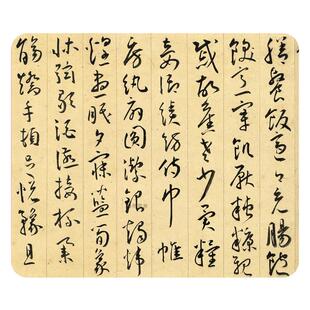 膳餐飯適口充腸飽
飫烹宰飢厭糟糠親
戚故舊老少異糧
妾御績紡侍巾帷
房紈扇圓潔銀燭煒
煌晝眠夕寐藍筍象
床弦歌酒讌接杯舉
觴矯手頓足悅豫且